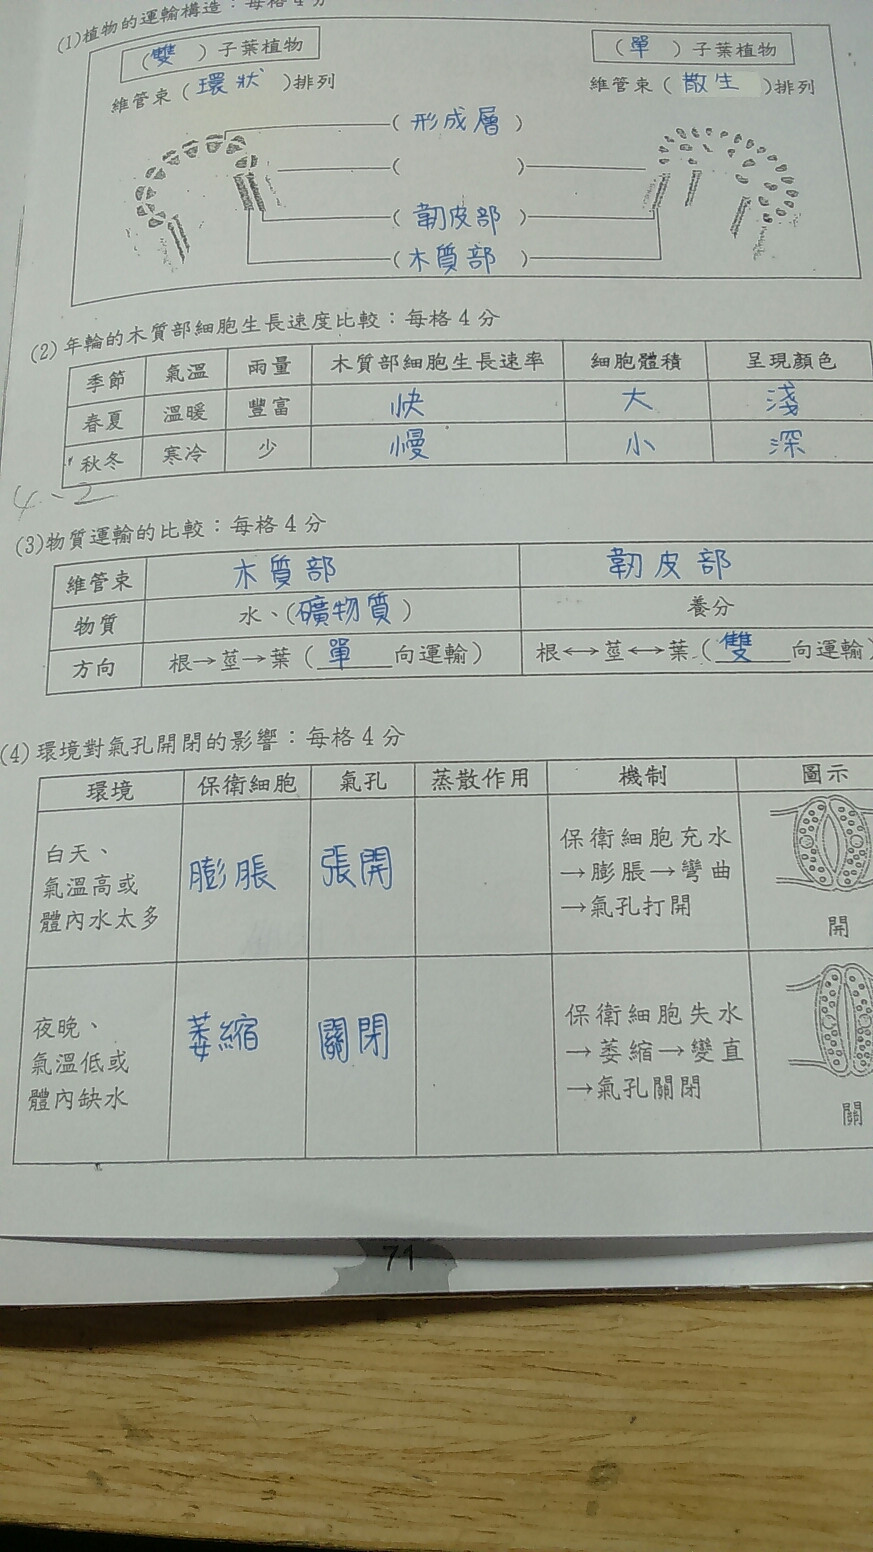 (1)植物的運輸構造：每格4分
(雙)子葉植物
(單)子葉植物
維管束(環狀)排列
維管束(散生)排列
(形成層)
( )
(韌皮部)
(木質部)
(2)年輪的木質部細胞生長速度比較：每格4分
季節 氣溫 雨量 木質部細胞生長速率 細胞體積 呈現顏色
春夏 溫暖 豐富 快 大 淺
秋冬 寒冷 少 慢 小 深
4-2
(3)物質運輸的比較：每格4分
維管束 木質部 韌皮部
物質 水、(礦物質) 養分
方向 根→莖→葉(單向運輸) 根↔莖↔葉(雙向運輸)
(4)環境對氣孔開閉的影響：每格4分
環境 保衛細胞 氣孔 蒸散作用 機制 圖示
白天、
氣溫高或
體內水太多
膨脹 張開
保衛細胞充水
→膨脹→彎曲
→氣孔打開
開
夜晚、
氣溫低或
體內缺水
萎縮 關閉
保衛細胞失水
→萎縮→變直
→氣孔關閉
關
71